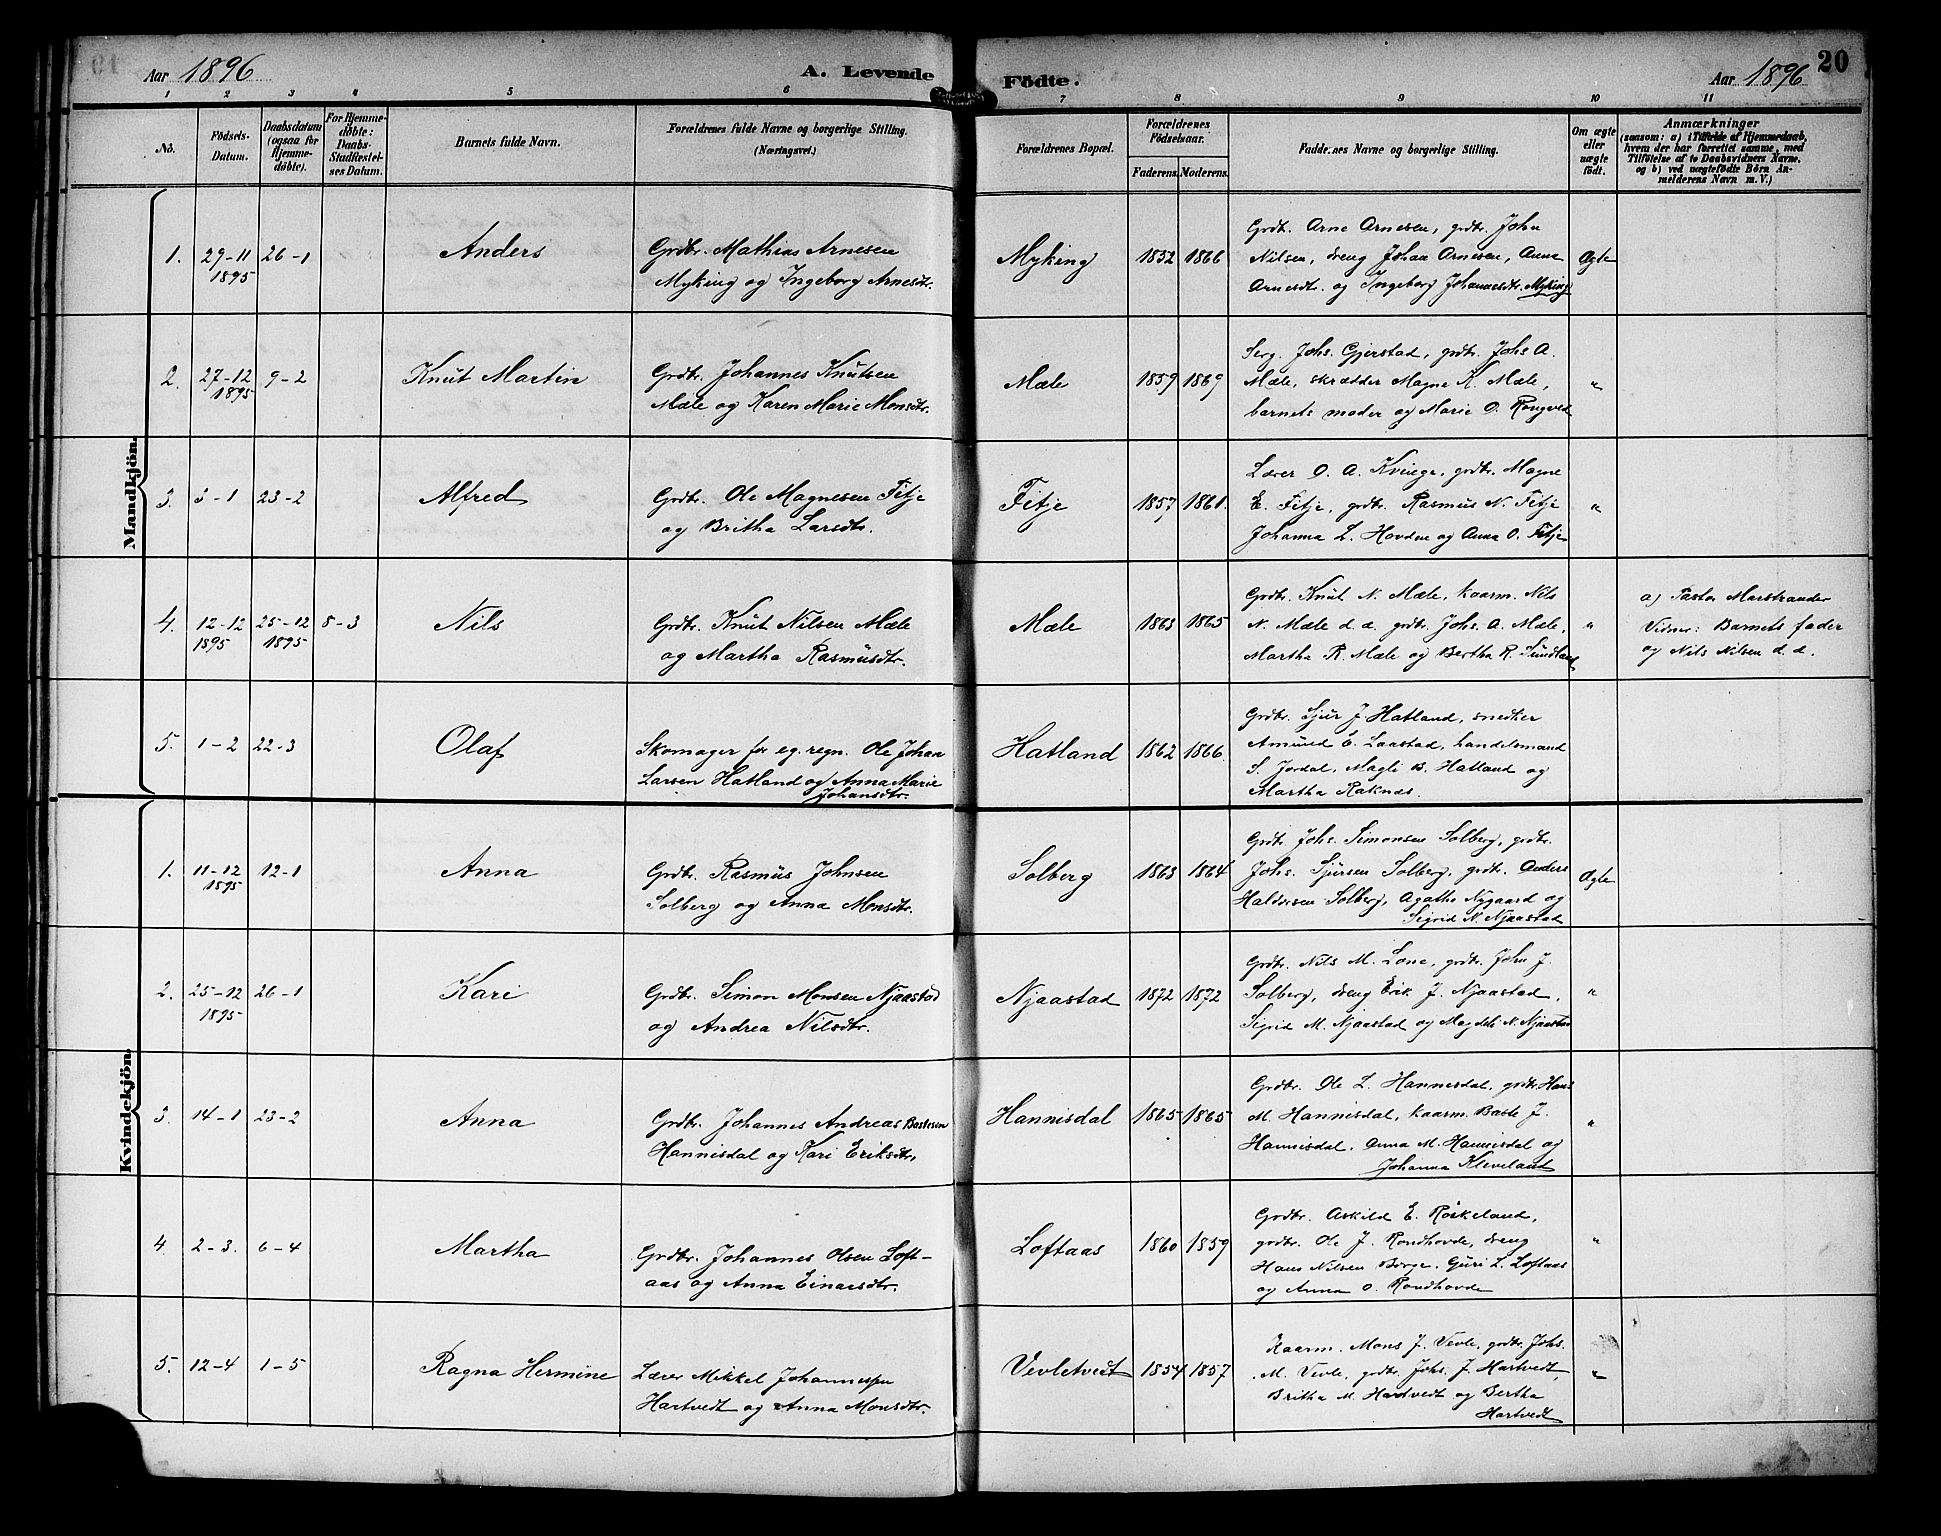 19
Aar 1896
A. Levende
Födte.
Aar 1896
20
1 2 3 4 5 6 7 8 9 10 11
No.
Födsels-
Datum.
Daabsdatum
(ogsaa for
Hjemme-
döbte).
For Hjemme-
döbte:
Daabs-
Stadfæstel-
ses Datum.
Barnets fulde Navn.
Forældrenes fulde Navne og borgerlige Stilling.
(Næringsvei.)
Forældrenes Bopæl.
Forældrenes
Födselsaar.
Faderens.
Moderens.
Faddernes Navne og borgerlige Stilling.
Om ægte
eller
uægte
födt.
Anmærkninger
(saasom: a) i Tilfælde af Hjemmedaab,
hvem der har forrettet samme, med
Tilföielse af to Daabsvidners Navne,
og b) ved uægtefödte Börn An-
melderens Navn m. V.)
Mandkjön.
1. 29-11 26-1
1895
Anders
Grdbr. Mathias Arnesen
Myking og Ingeborg Arnesdtr.
Myking 1832 1866
Grdbr. Arne Arnesen, grdbr. John
Nilsen, dreng Johan Arnesen, Anna
Arnesdtr. og Ingeborg Johannesdtr. Myking
Ægte
2. 27-12 9-2
1895
Knut Martin
Grdbr. Johannes Knutsen
Mæle og Karen Marie Monsdtr.
Mæle 1859 1869
Serg. Johs. Gjerstad, grdbr. Johs A.
Mæle, skrædder Magne K. Mæle,
barnets moder og Marie O. Rongved
"
3. 3-1 23-2
Alfred
Grdbr. Ole Magnesen Fitje
og Britha Larsdtr.
Fitje 1857 1861.
Lærer O. A. Kvinge, grdbr. Magne
E. Fitje, grdbr. Rasmus N. Fitje
Johanna L. Hovden og Anna O. Fitje
"
4. 12-12 25-12 8-3
1895 1895
Nils
Grdbr. Knut Nilsen Mæle
og Martha Rasmusdtr.
Mæle 1863 1865
Grdbr. Knut N. Mæle, kaarm. Nils
N. Mæle d. æ. grdbr. Johs. A. Mæle,
Martha R. Mæle og Bertha R. Sundland
"
a) Pastor Marstrander
Vidner: Barnets fader
og Nils Nilsen d. æ.
5. 1-2 22-3
Olaf
Skomager for eg. regn. Ole Johan
Larsen Hatland og Anna Marie
Johansdtr.
Hatland 1862 1866.
Grdbr. Sjur J Hatland, snedker
Amund E. Laastad, handelsmand
S. Jordal, Magli B. Hatland og
Martha Raknes.
Kvindekjön.
1. 11-12 12-1
1895
Anna
Grdbr. Rasmus Johnsen
Solberg og Anna Monsdtr.
Solberg 1863 1864
Grdbr Johs. Simonsen Solberg, grdbr.
Johs. Sjursen Solberg, grdbr. Anders
Haldorsen Solberg, Agathe Nygaard og
Sigrid N. Njaastad
Ægte
2. 25-12 26-1
1895
Kari
Grdbr. Simon Monsen Njaastad
og Andrea Nilsdtr.
Njaastad 1872 1872
Grdbr. Nils M. Lone, grdbr. John J.
Solberg, dreng Erik J. Njaastad,
Sigrid M. Njaastad og Magdeli N. Njaastad
"
3. 14-1 23-2
Anna
Grdbr. Johannes Andreas Bastesen
Hannisdal og Kari Eriksdtr.
Hannisdal 1865 1865
Grdbr. Ole L. Hannesdal, grdbr. Hans
M. Hannisdal, kaarm. Baste J.
Hannisdal. Anna M. Hannisdal og
Johanna Kleveland
"
4. 2-3. 6-4
Martha
Grdbr. Johannes Olsen Loft-
aas og Anna Einarsdtr.
Loftaas 1860 1859
Grdbr. Askild E. Röskeland,
grdbr. Ole J. Rondhovde, dreng
Hans Nilsen Börge. Guri L. Loftaas
og Anna O. Rondhovde
"
5. 12-4 1-5
Ragna Hermine
Lærer Mikkel Johannessen
Hartvedt og Anna Monsdtr.
Vevletvedt 1854 1857
Kaarm. Mons J. Vevle, grdbr. Johs.
M. Vevle, grdbr. Johs. J. Hartvedt,
Britha M. Hartvedt og Bertha
Hartvedt
"